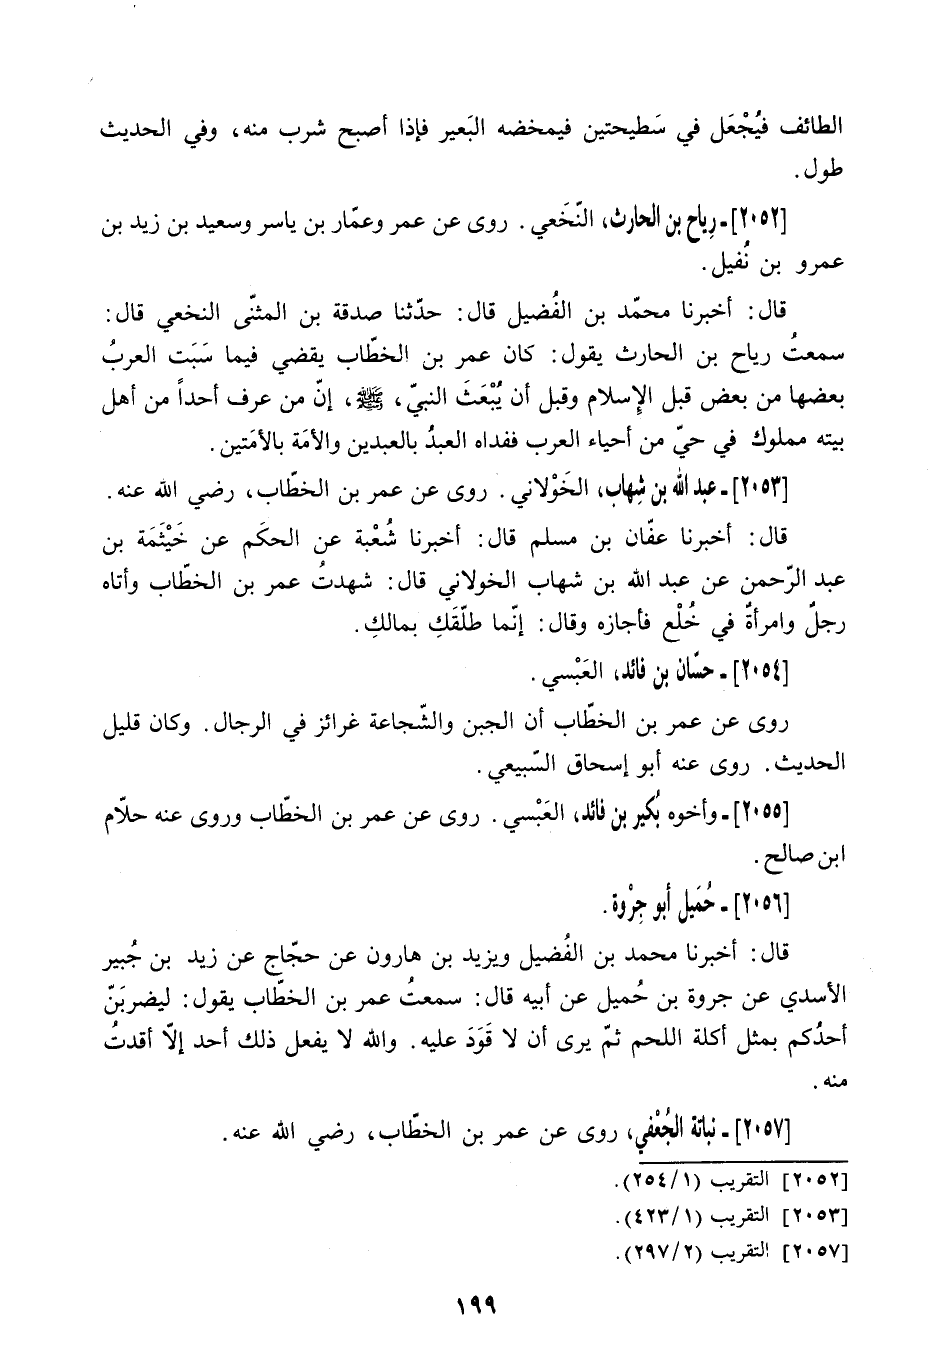 الطائف فيُجْعَل في سَطيحتين فيمخضه البَعير فإذا أصبح شرب منه، وفي الحديث
طول.
[٢٠٥٢] ـ رِياح بن الحارث، النّخَعي. روى عن عمر وعمّار بن ياسر وسعيد بن زيد بن
عمرو بن نُفيل.
قال: أخبرنا محمّد بن الفُضيل قال: حدّثنا صدقة بن المثنّى النخعي قال:
سمعتُ رياح بن الحارث يقول: كان عمر بن الخطّاب يقضي فيما سَبَت العربُ
بعضها من بعض قبل الإسلام وقبل أن يُبْعَثَ النبيّ، ﷺ، إنّ من عرف أحداً من أهل
بيته مملوك في حيّ من أحياء العرب ففداه العبدُ بالعبدين والأمَة بالأمَتين.
[٢٠٥٣] ـ عبد الله بن شِهاب، الخَوْلاني. روى عن عمر بن الخطّاب، رضي الله عنه.
قال: أخبرنا عفّان بن مسلم قال: أخبرنا شُعْبة عن الحكم عن خَيْثَمة بن
عبد الرّحمن عن عبد الله بن شهاب الخولاني قال: شهدتُ عمر بن الخطّاب وأتاه
رجلٌ وامرأةٌ في خُلْع فأجازه وقال: إنّما طلّقَكِ بمالكِ.
[٢٠٥٤] ـ حسّان بن فائد، العَبْسي.
روى عن عمر بن الخطّاب أن الجبن والشّجاعة غرائز في الرجال. وكان قليل
الحديث. روى عنه أبو إسحاق السّبيعي.
[٢٠٥٥] ـ وأخوه بُكير بن فائد، العَبْسي. روى عن عمر بن الخطّاب وروى عنه حلاّم
ابن صالح.
[٢٠٥٦] ـ حُمَيل أبو جِرْوة.
قال: أخبرنا محمد بن الفُضيل ويزيد بن هارون عن حجّاج عن زيد بن جُبير
الأسدي عن جروة بن حُميل عن أبيه قال: سمعتُ عمر بن الخطّاب يقول: ليضربَنّ
أحدُكم بمثل أكلة اللحم ثمّ يرى أن لا قَوَدَ عليه. والله لا يفعل ذلك أحد إلاّ أقدتُ
منه.
[٢٠٥٧] ـ نباتة الجُعْفي، روى عن عمر بن الخطّاب، رضي الله عنه.
[٢٠٥٢] التقريب (٢٥٤/١).
[٢٠٥٣] التقريب (٤٢٣/١).
[٢٠٥٧] التقريب (٢٩٧/٢).
١٩٩